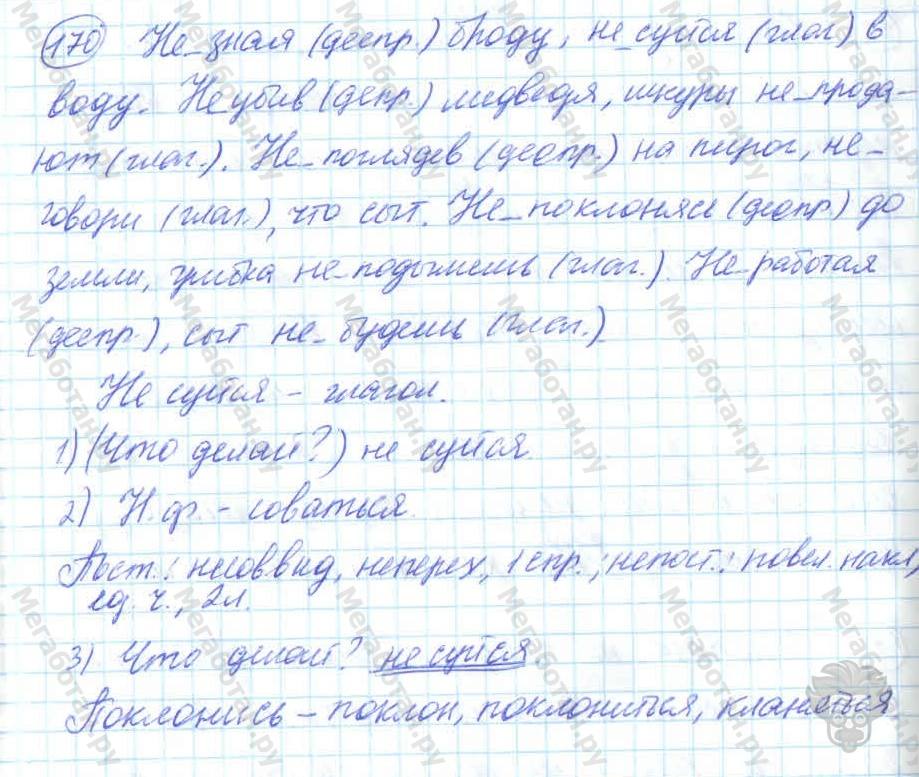 170 Не_зная (деепр.) броду, не_суйся (глаг.) в
воду. Не_убив (депр.) медведя, шкуры не_прода-
ют (глаг.). Не_поглядев (деепр.) на пирог, не_
говори (глаг.), что сыт. Не_поклонясь (деепр) до
земли, грибка не_подымешь (глаг.). Не_работая
(деепр.), сыт не_будешь (глаг.)
Не суйся – глагол.
1) (Что делай?) не суйся.
2) Н.ф. – соваться.
Пост.: несов.вид, неперех, 1 спр.; непост.: повел. накл,
ед. ч., 2л.
3) Что делай? не суйся
Поклонись – поклон, поклониться, кланяться.
Мегаботан.ру